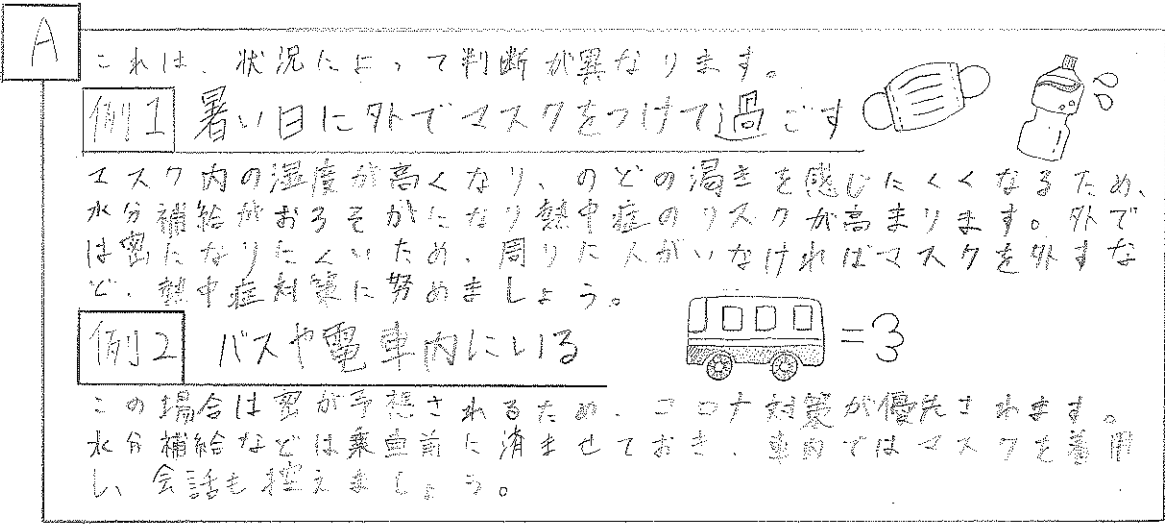 A
これは、状況によって判断が異なります。
例1 暑い日に外でマスクをつけて過ごす
マスク内の湿度が高くなり、のどの渇きを感じにくくなるため、
水分補給がおろそかになり熱中症のリスクが高まります。外で
は密になりにくいため、周りに人がいなければマスクを外すな
ど、熱中症対策に努めましょう。
例2 バスや電車内にいる
この場合は密が予想されるため、コロナ対策が優先されます。
水分補給などは乗車前に済ませておき、車内ではマスクを着用
し、会話も控えましょう。